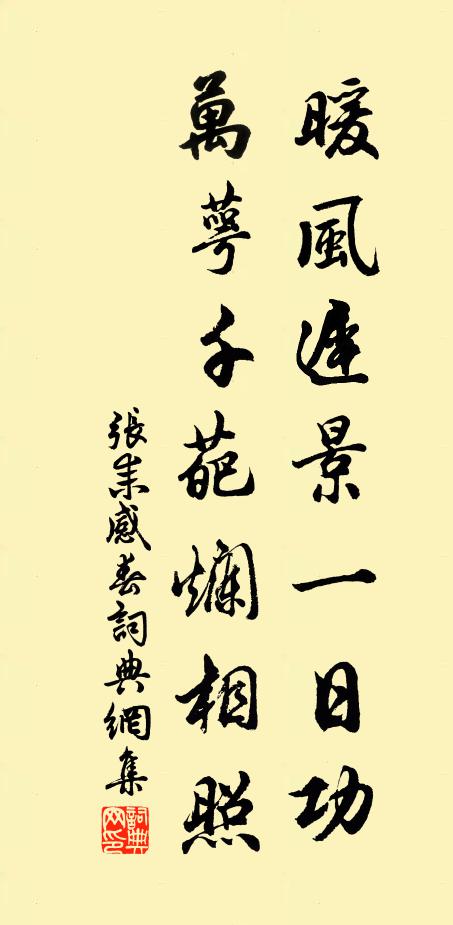 暖風遲景一日功
萬萼千葩爛相照
張耒感春詞典網集
詞典网印